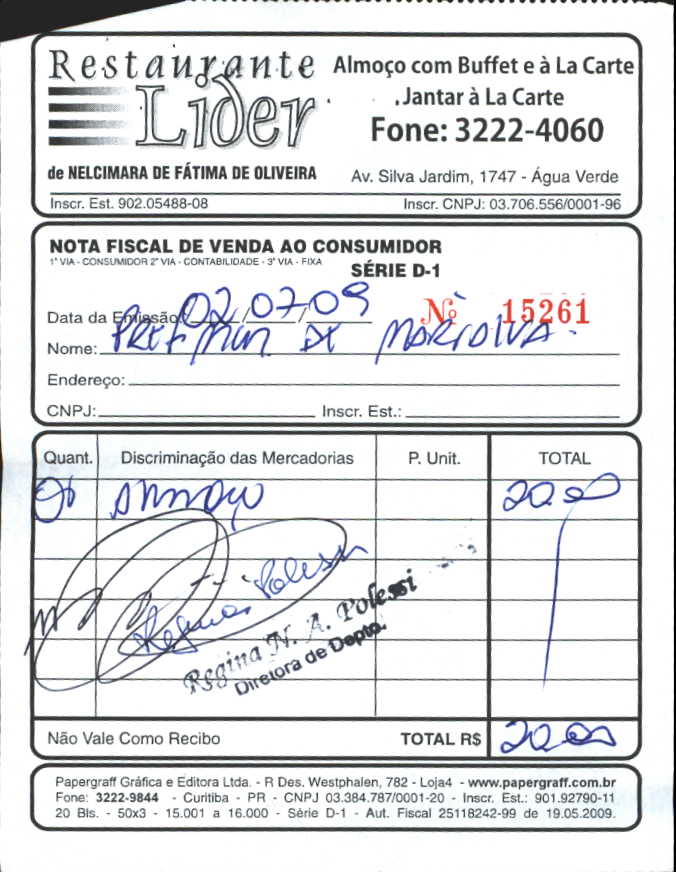 Restaurante
Lider
Almoço com Buffet e à La Carte
Jantar à La Carte
Fone: 3222-4060
de NELCIMARA DE FÁTIMA DE OLIVEIRA
Av. Silva Jardim, 1747 - Água Verde
Inscr. Est. 902.05488-08
Inscr. CNPJ: 03.706.556/0001-96
NOTA FISCAL DE VENDA AO CONSUMIDOR
1ª VIA - CONSUMIDOR 2ª VIA - CONTABILIDADE - 3ª VIA - FIXA
SÉRIE D-1
Data da Emissão 02/07/09 Nº 15261
Nome: PREF MUN DE MARIALVA
Endereço:
CNPJ: Inscr. Est.:
Quant. Discriminação das Mercadorias P. Unit. TOTAL
Almoço 20,00
Regina Polessi
Regina N. A. Polessi
Diretora de Depto.
Não Vale Como Recibo TOTAL R$ 20,00
Papergraff Gráfica e Editora Ltda. - R Des. Westphalen, 782 - Loja4 - www.papergraff.com.br
Fone: 3222-9844 - Curitiba - PR - CNPJ 03.384.787/0001-20 - Inscr. Est.: 901.92790-11
20 Bls. - 50x3 - 15.001 a 16.000 - Série D-1 - Aut. Fiscal 25118242-99 de 19.05.2009.